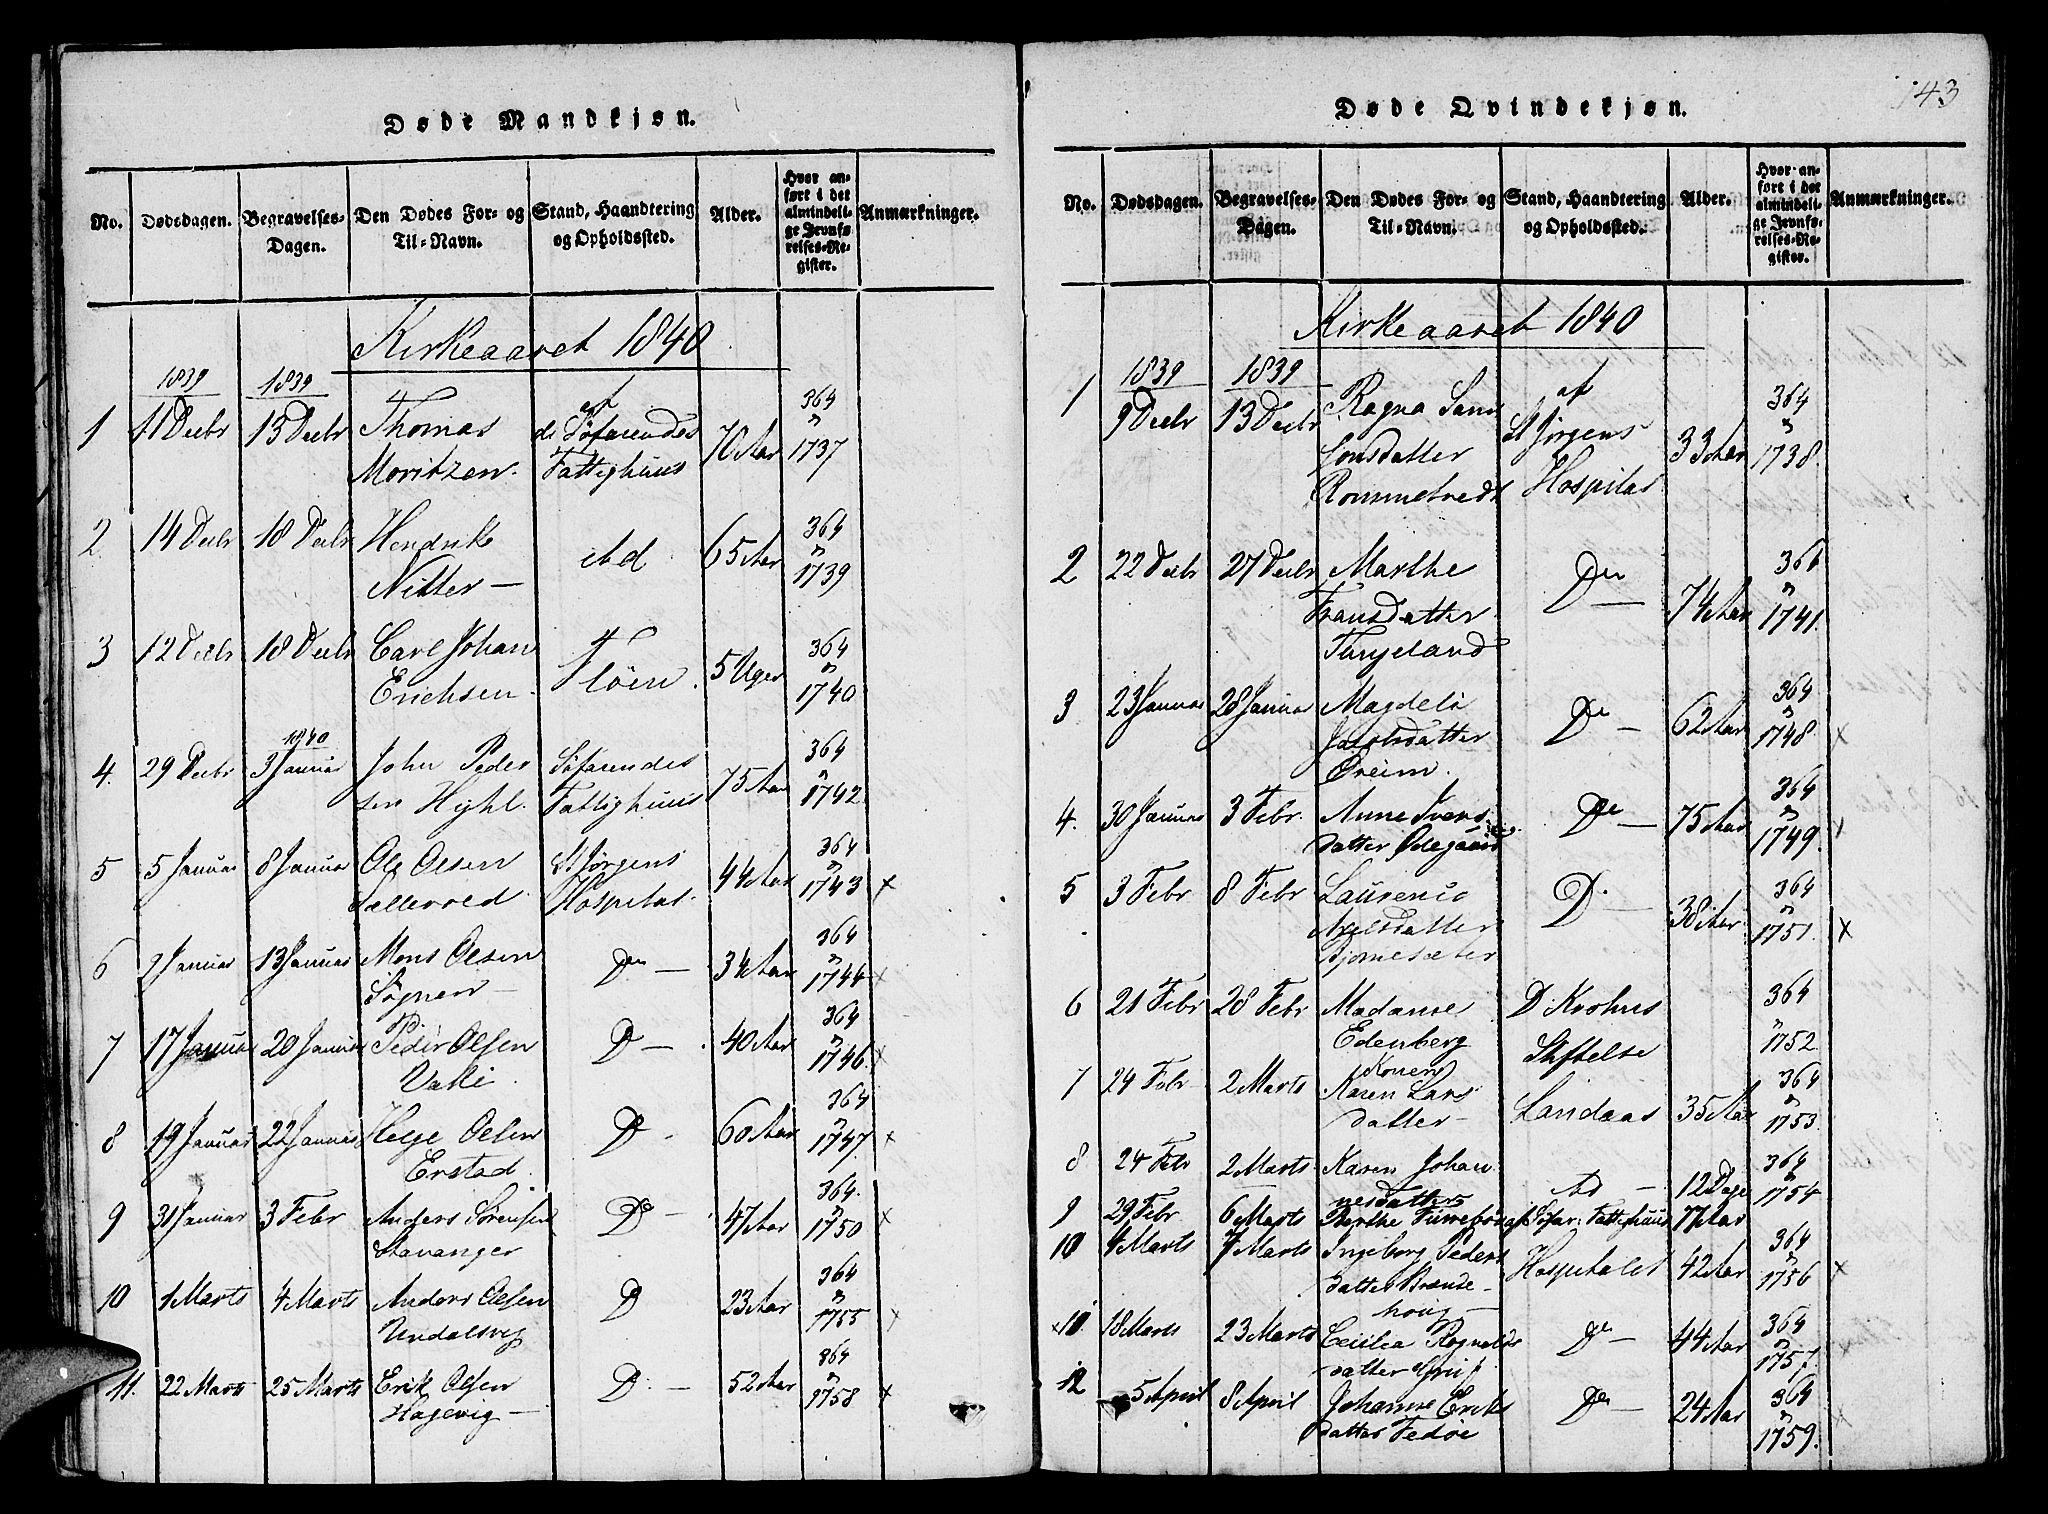 Døde Mandkjøn.
No. Dødsdagen. Begravelses-Dagen. Den Dødes For- og Til-Navn. Stand, Haandtering og Opholdssted. Alder. Hvor anført i det almindelige Jevnførelses-Register. Anmærkninger.
Kirkeaaret 1840
1839 1839
1 11 Decbr 13 Decbr Thomas af
Moritzen. de Søfarendes Fattighuus 70 Aar 364 n 1737
2 14 Decbr 18 Decbr Hendrik
Nitter — ibd 65 Aar 364 n 1739
3 12 Decbr 18 Decbr Carl Johan
Erichsen. Fløien. 5 Uger 364 n 1740
1840
4. 29 Decbr 3 Januar John Peder
sen Hyhl. Søfarendes Fattighuus 75 Aar 364 n 1742
5 5 Januar 8 Januar Ole Olsen
Sallevold St Jørgens Hospital. 44 Aar 364 n 1743 x
6 Januar 13 Januar Mons Olsen
Sognen — Do — 34 Aar 364 n 1744 x
7 17 Januar 20 Januar Peder Olsen
D — 40 Aar 364 n 1746 x
8 19 Januar 22 Januar Helge Olsen
Erstad. D - 60 Aar 364 n 1747. x
9 30 Januar 3 Febr Anders Sørensen
Stavanger Do - 47 Aar 364. n 1750 x
10 1 Marts 4 Marts Anders Olsen
Undalsvig D 23 Aar 364 n 1755 x
11. 22 Marts 25 Marts Erik Olsen
Hagevig — D. — 52 Aar 364 n 1758 x
143
Døde Qvindekjøn.
No. Dødsdagen. Begravelses-Dagen. Den Dødes For- og Til-Navn. Stand, Haandtering og Opholdssted. Alder. Hvor anført i det almindelige Jevnførelses-Register. Anmærkninger.
Kirkeaaret 1840
1839 1839
1 9 Decbr 13 Decbr Ragna Sam
sonsdatter
Rommetvedt af St Jørgens Hospital 33 Aar 364 n 1738.
2 22 Decbr 27 Decbr Marthe
Fransdatter
Tungeland Do — 74 Aar 364 n 1741.
3 23 Januar 28 Januar Magdele
Jacobsdatter
Øreim. Do — 62 Aar 364 n 1748 x
4. 30 Januar 3 Febr. Anne Ivers
datter Ødegaard Do — 75 Aar 364 n 1749. x
5 3 Febr 8 Febr Laurence
Axelsdatter
Bjørnesæter D. — 38 Aar 364 n 1751. x
6 21 Febr 28 Febr Madamme
Edenberg D Krohns Stiftelse 364 n 1752
7 24 Febr 2 Marts Konen
Karen Lars
datter — Landaas 35 Aar 364 n 1753.
8 24 Febr 2 Marts Karen Johan
nesdatter ibd — 12 Dage 364 n 1754
9 29 Febr 6 Marts Berthe Søfar: Fattighuus 77 Aar
10 4 Marts 7 Marts Ingeborg Peders
datter Brænde
houg — Hospitalet 42 Aar 364 n 1756 x
x 11. 18 Marts 23 Marts Cecilia Rognalds
datter Do — 44 Aar 364 n 1757. x
12 5 April 8 April Johanne Eriks
datter Fedøe Do — 24 Aar 364 n 1759. x